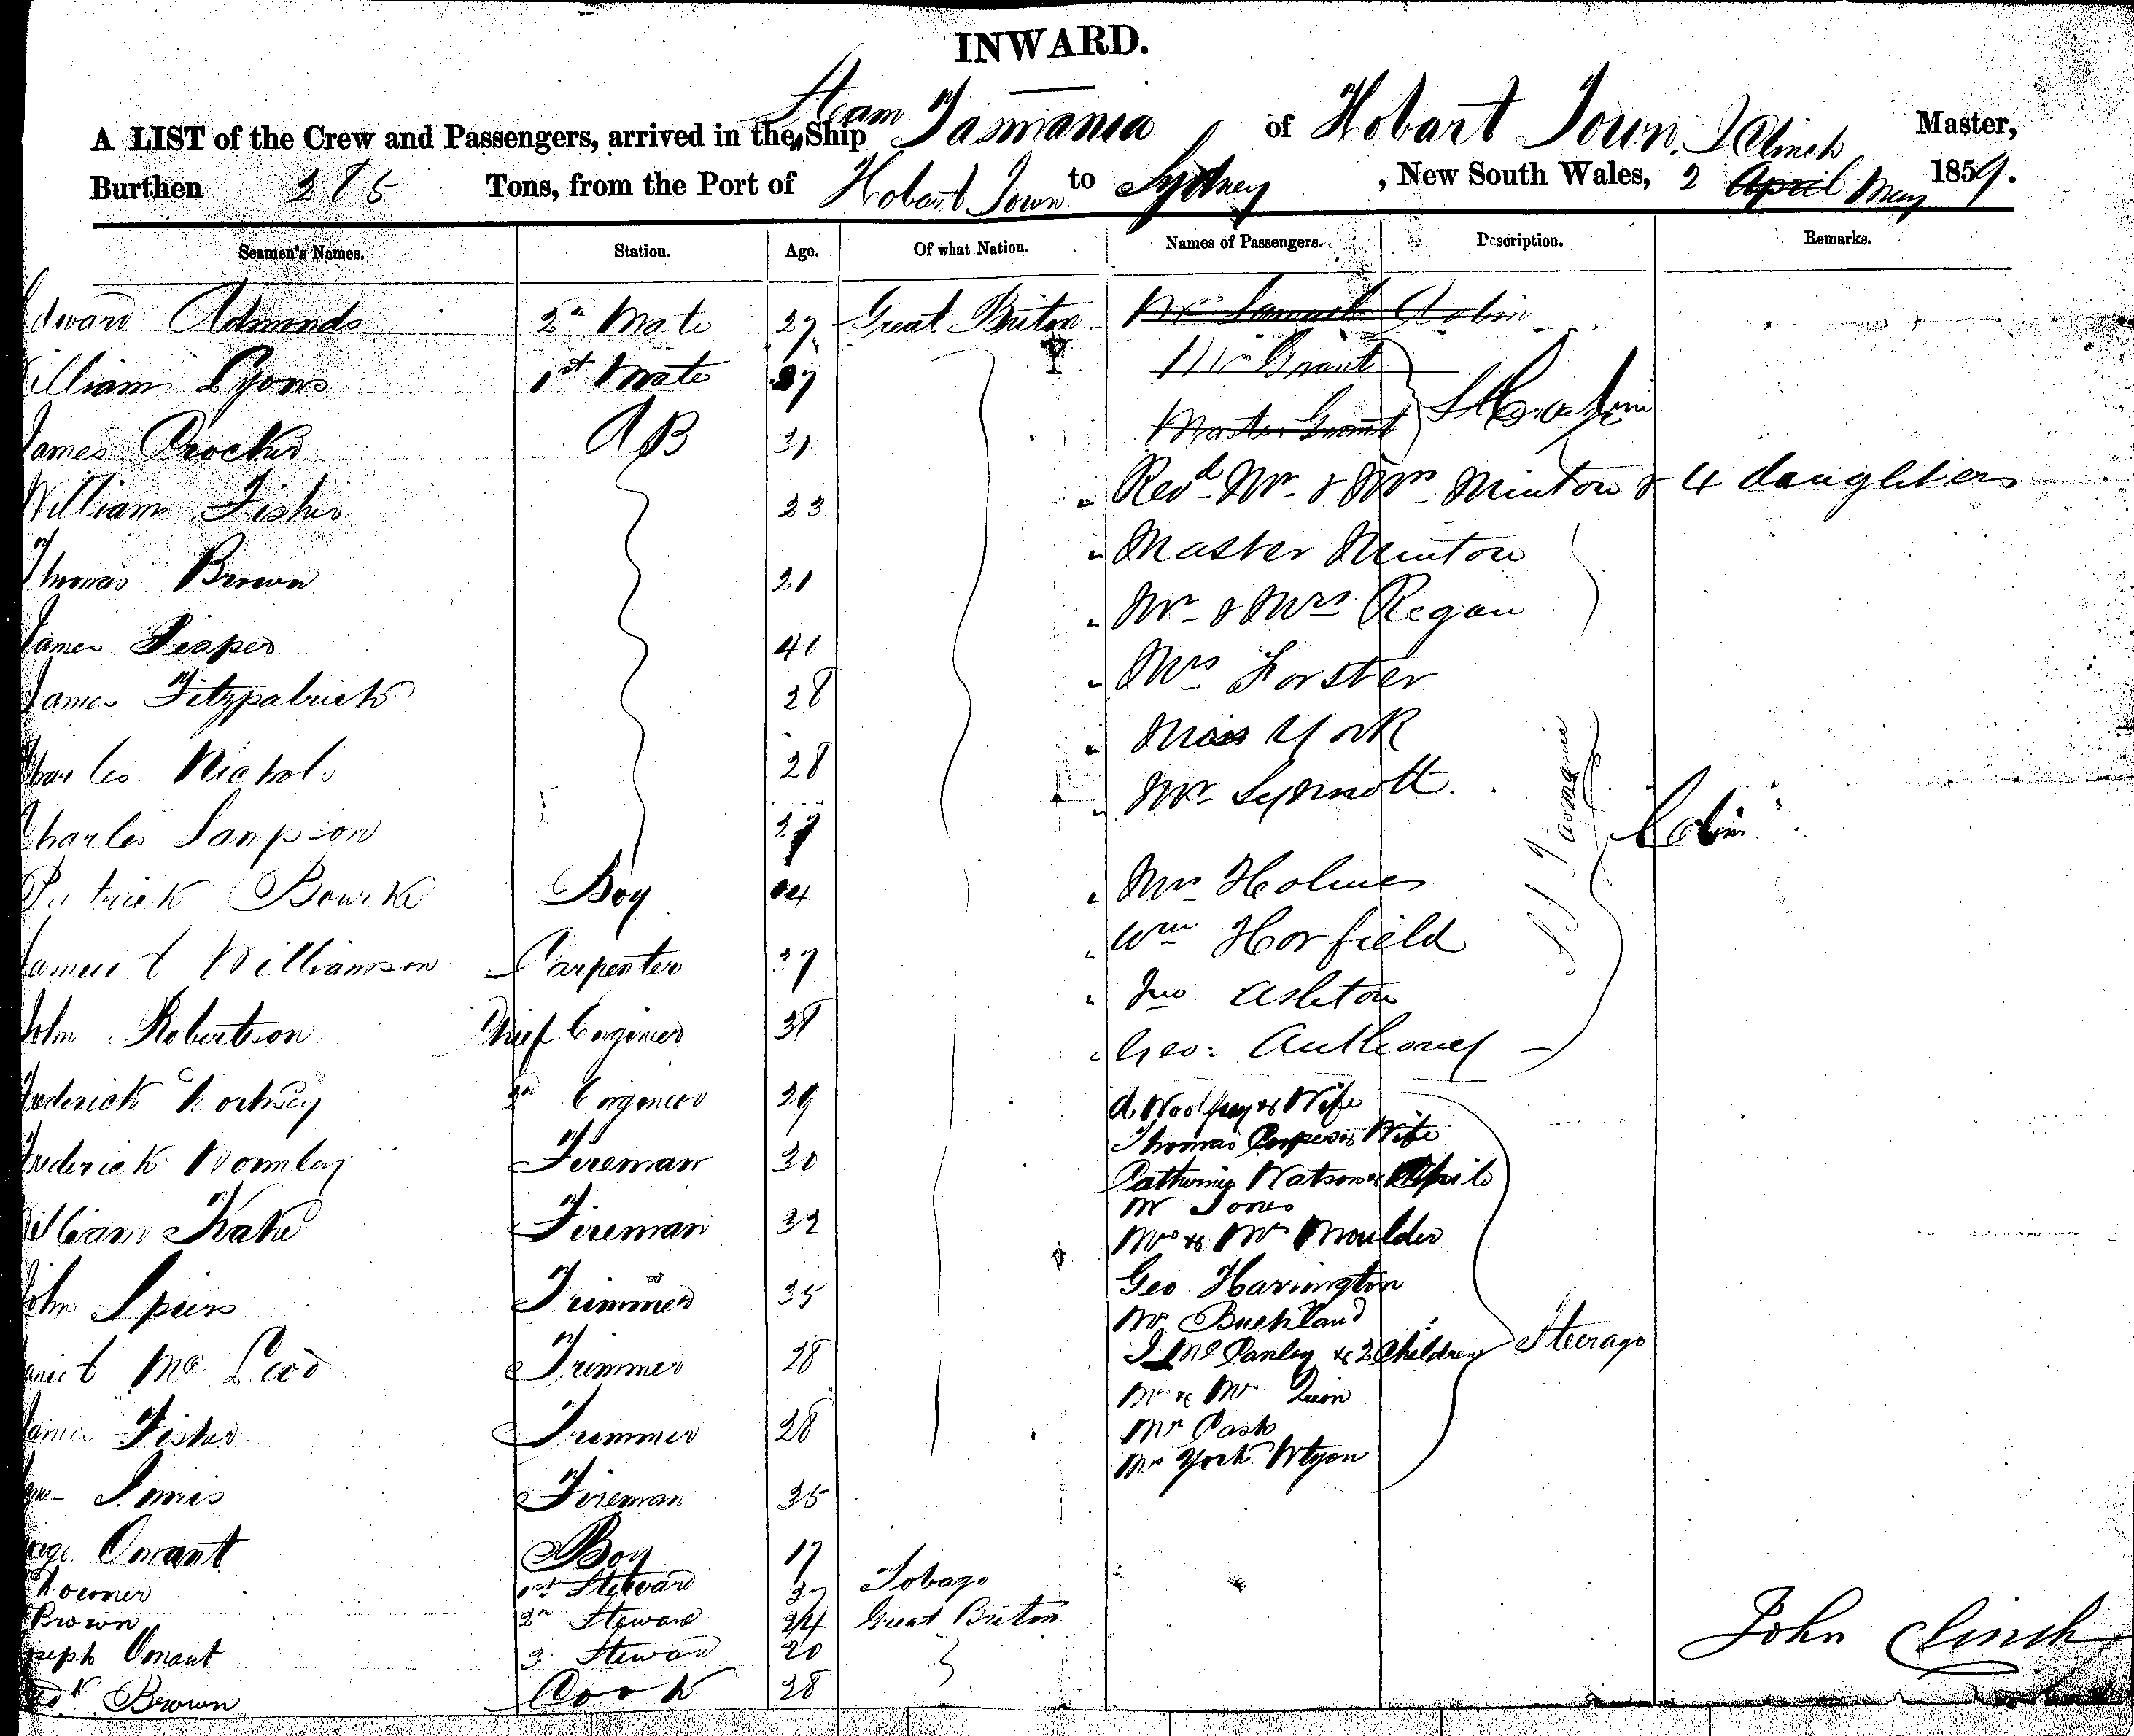 INWARD.
A LIST of the Crew and Passengers, arrived in the Steam Ship Tasmania of Hobart Town, J Clinch Master,
Burthen 285 Tons, from the Port of Hobart Town to Sydney, New South Wales, 2 April May 1859.
Seamen's Names. Station. Age. Of what Nation. Names of Passengers. Description. Remarks.
dward Admonds 2n Mate 27 Great Briton Mr Samuel Cabin
illiam Lyons 1st Mate 37 Mr Grant
James Crocker AB 31 Master Grant
William Fisher 23 Revd Mr & Mrs Minton & 4 daughters
Thomas Brown 21 " Master Minton
James 41 " Mr & Mrs Regan
James Fitzpatrick 28 " Mrs Forster
Charles Nichols 28 " Miss York
Charles Sampson 27 " Mr Synnott
SS Tasmania
Cabin
Patrick Bourke Boy 14 " Mr Holmes
Samuel Williamson Carpenter 37 " Wm Horfield
John Robertson Chief Engineer 38 " Jno Ashton
" Geo: Anthoney
Frederick 2n Engineer 29 A Woolfrey & Wife
Thomas & Wife
Frederick Wormley Fireman 30 Catherine Watson &
Mr Jones
illiam Kake Fireman 32 Mrs & Mr Moulder
John Spiers Trimmer 35 Geo Harrington
Mr Buckland
aniel Mc Leod Trimmer 28 J Mc Canley & 2 Children Steerage
Mr & Mrs Quin
James Fisher Trimmer 28 Mr Cash
Mrs York
Innis Fireman 35
orge Omant Boy 17
1st Steward 37 Tobago
Brown 2n Steward 24 Great Briton
oseph Omant 3 Steward 20
Brown Cook 28
John Clinch